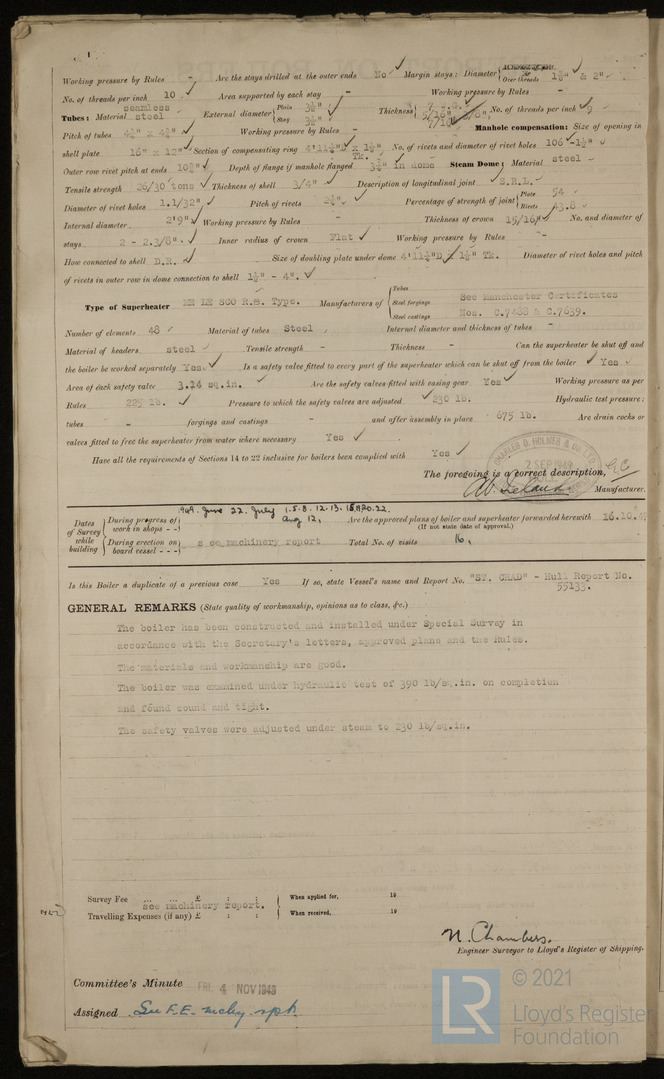 Working pressure by Rules - Are the stays drilled at the outer ends No Margin stays: Diameter { At turned off part, or Over threads 1⅞" & 2"
No. of threads per inch 10 Area supported by each stay - Working pressure by Rules -
Tubes: Material seamless steel External diameter { Plain 3½" Stay 3½" Thickness { 5/16" 7/16" No. of threads per inch 9
Pitch of tubes Working pressure by Rules - Manhole compensation: Size of opening in
shell plate 16" x 12" Section of compensating ring 4'11½"D x 1½" Tk. No. of rivets and diameter of rivet holes 106 -1½"
Outer row rivet pitch at ends Depth of flange if manhole flanged in dome Steam Dome: Material steel
Tensile strength 26/30 tons Thickness of shell 3/4" Description of longitudinal joint S.R.L.
Diameter of rivet holes 1.1/32" Pitch of rivets Percentage of strength of joint { Plate 54 Rivets 43.8
Internal diameter 2'9" Working pressure by Rules - Thickness of crown 15/16" No. and diameter of
stays 2 - 2.3/8" Inner radius of crown Flat Working pressure by Rules -
How connected to shell D.R. Size of doubling plate under dome 4'11½"D x 1½" Tk. Diameter of rivet holes and pitch
of rivets in outer row in dome connection to shell 1½" - 4".
Type of Superheater ME LE SCO R.S. Type. Manufacturers of { Tubes Steel forgings Steel castings See Manchester Certificates Nos. C.7488 & C.7639.
Number of elements 48 Material of tubes Steel Internal diameter and thickness of tubes -
Material of headers steel Tensile strength - Thickness - Can the superheater be shut off and
the boiler be worked separately Yes Is a safety valve fitted to every part of the superheater which can be shut off from the boiler Yes
Area of each safety valve 3.14 sq.in. Are the safety valves fitted with easing gear Yes Working pressure as per
Rules 225 lb. Pressure to which the safety valves are adjusted 230 lb. Hydraulic test pressure:
tubes - forgings and castings - and after assembly in place 675 lb. Are drain cocks or
valves fitted to free the superheater from water where necessary Yes
Have all the requirements of Sections 14 to 22 inclusive for boilers been complied with Yes
CHARLES D. HOLMES & CO. LTD.
2 SEP 1949
The foregoing is a correct description,
Manufacturer.
Dates of Survey while building { During progress of work in shops - - 1949. June 22. July 1.5.8.12.13. Aug 12, Are the approved plans of boiler and superheater forwarded herewith 16.10.
(If not state date of approval.)
During erection on board vessel - - - see machinery report Total No. of visits 16.
Is this Boiler a duplicate of a previous case Yes If so, state Vessel's name and Report No. "ST. CHAD" - Hull Report No. 55133.
GENERAL REMARKS (State quality of workmanship, opinions as to class, &c.)
The boiler has been constructed and installed under Special Survey in
accordance with the Secretary's letters, approved plans and the Rules.
The materials and workmanship are good.
The boiler was examined under hydraulic test of 390 lb/sq.in. on completion
and found sound and tight.
The safety valves were adjusted under steam to 230 lb/sq.in.
Survey Fee ... ... £ : : } When applied for, 19
see machinery report.
Travelling Expenses (if any) £ : : } When received, 19
N. Chambers.
Engineer Surveyor to Lloyd's Register of Shipping.
Committee's Minute FRI 4 NOV 1949
Assigned See F.E. mchy. rpt.
© 2021
LR Lloyd's Register
Foundation